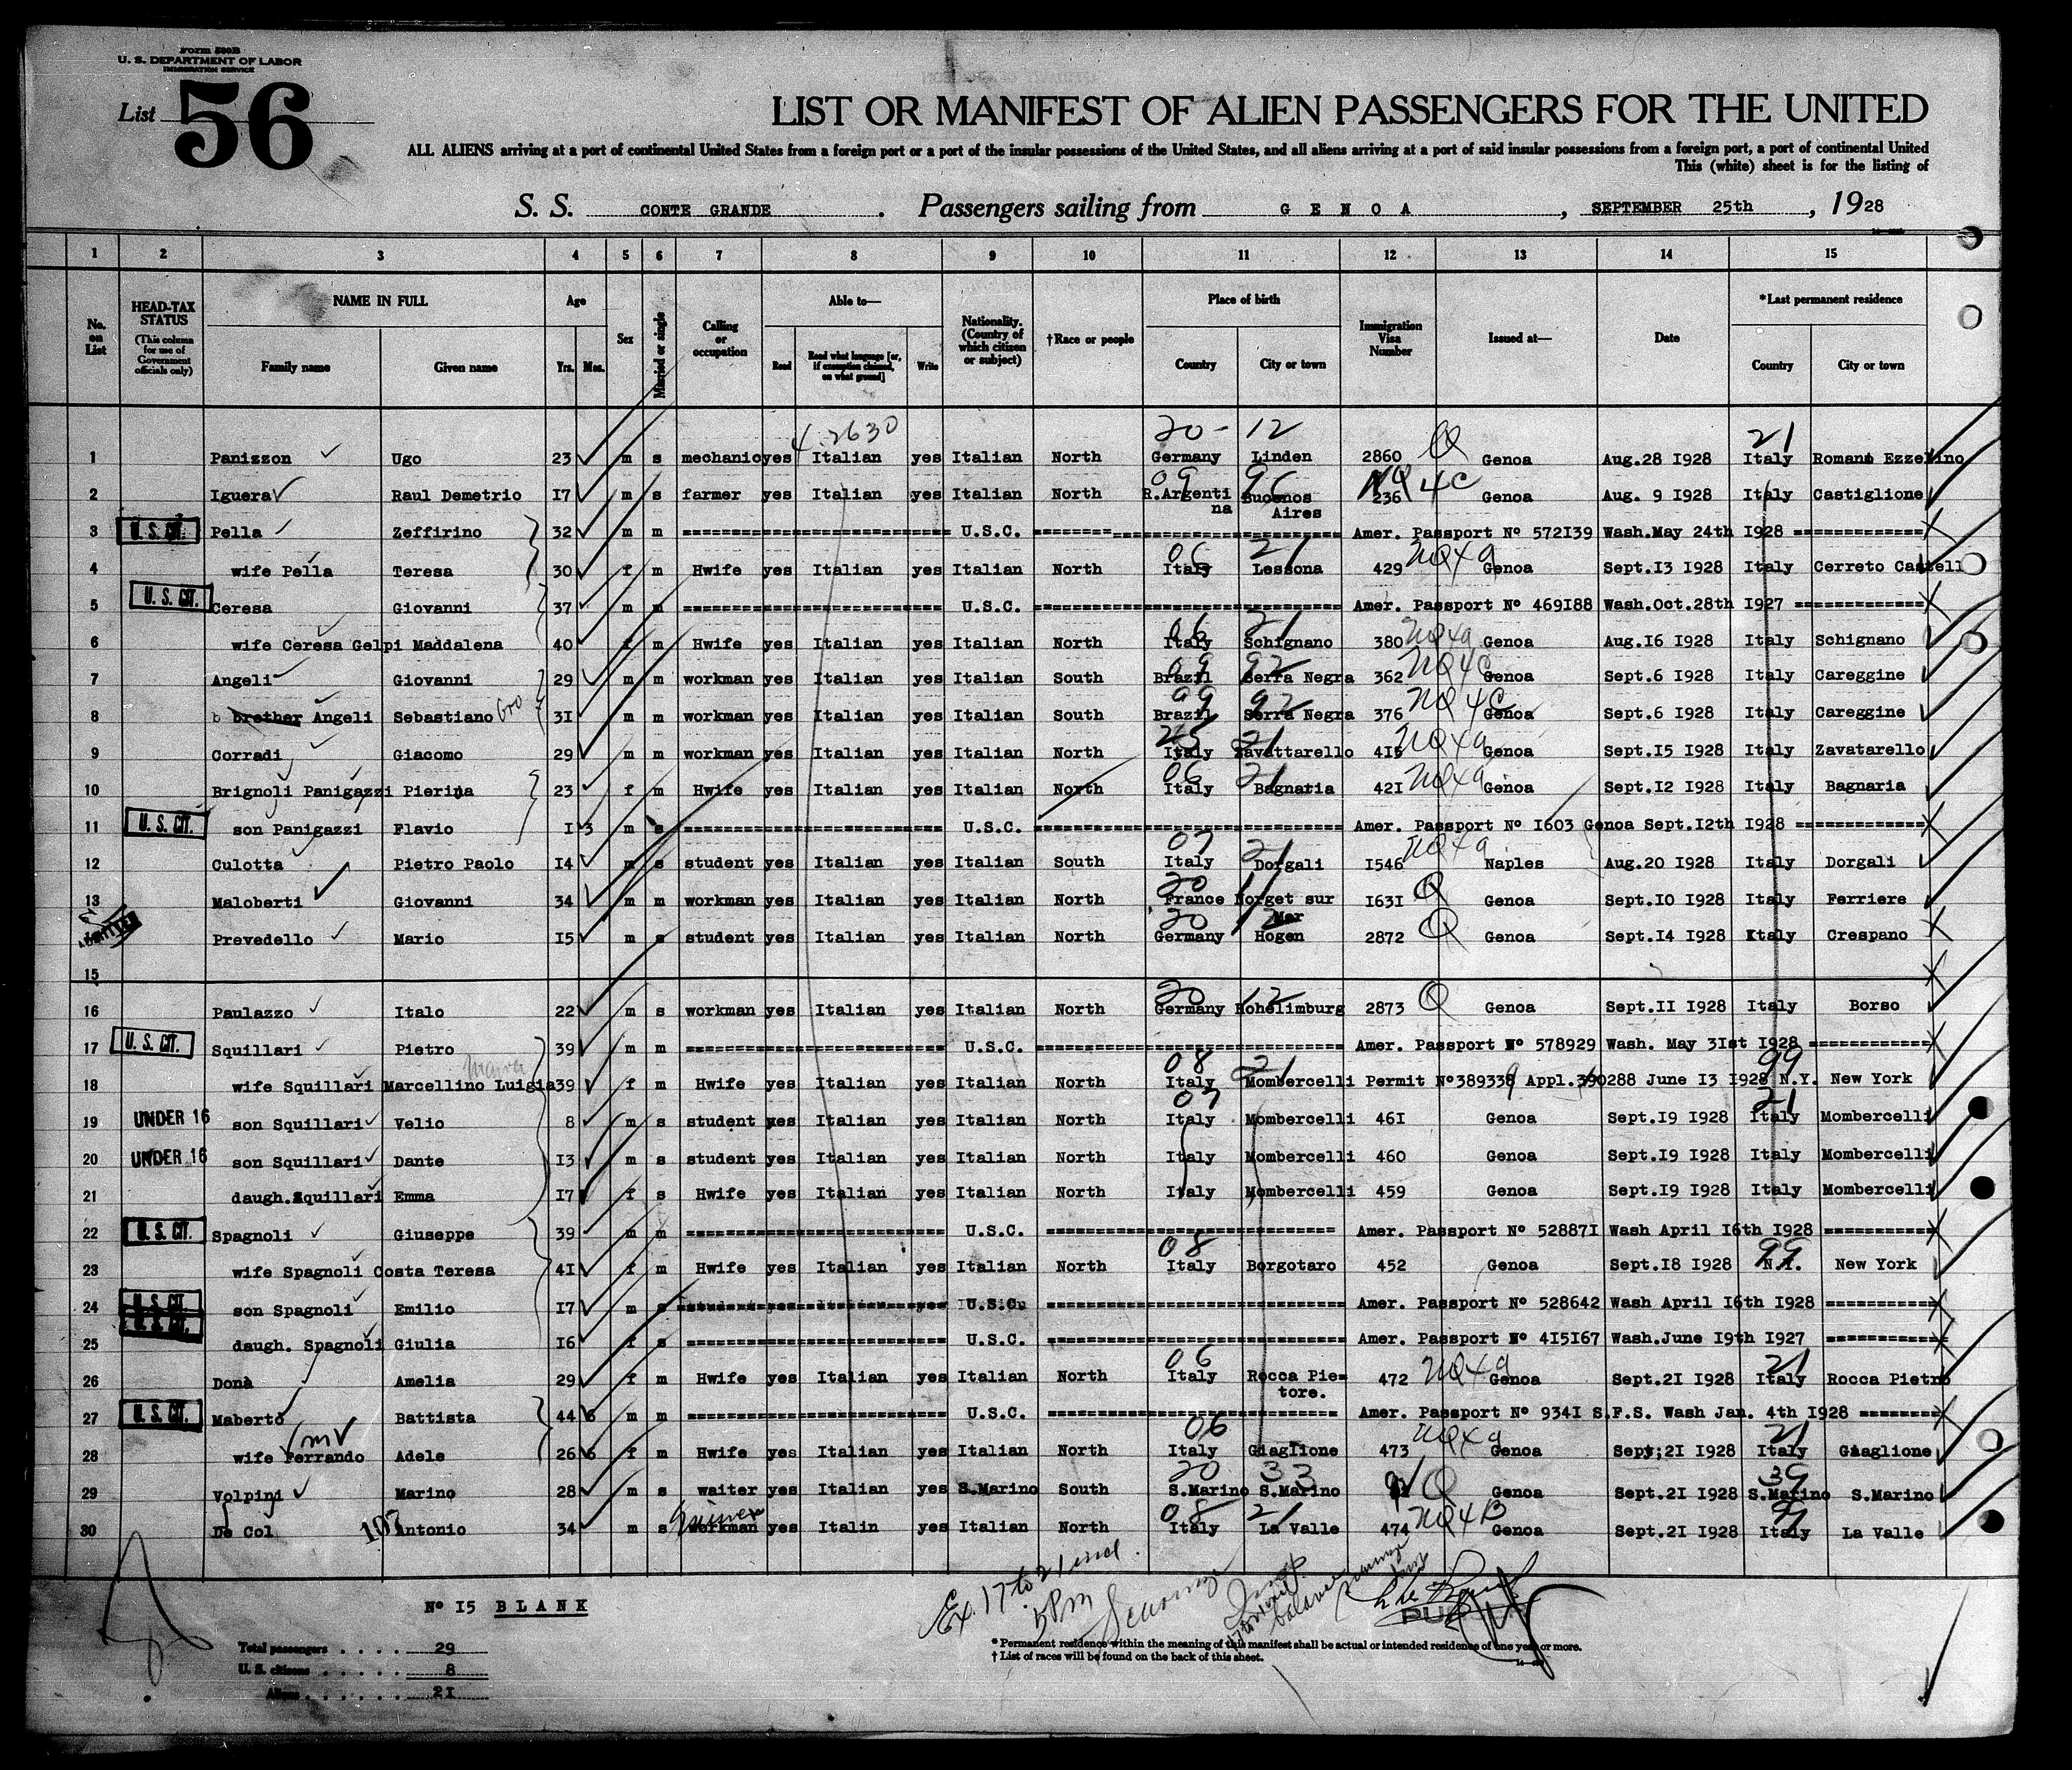 Form 500B
U. S. DEPARTMENT OF LABOR
IMMIGRATION SERVICE
List 56
LIST OR MANIFEST OF ALIEN PASSENGERS FOR THE UNITED
ALL ALIENS arriving at a port of continental United States from a foreign port or a port of the insular possessions of the United States, and all aliens arriving at a port of said insular possessions from a foreign port, a port of continental United
This (white) sheet is for the listing of
S. S. CONTE GRANDE . Passengers sailing from G E N O A , SEPTEMBER 25th , 1928
1 2 3 4 5 6 7 8 9 10 11 12 13 14 15
No. on List
HEAD-TAX STATUS (This column for use of Government officials only)
NAME IN FULL Family name Given name
Age Yrs. Mos.
Sex
Married or single
Calling or occupation
Able to— Read Read what language [or, if exemption claimed, on what ground] Write
Nationality. (Country of which citizen or subject)
†Race or people
Place of birth Country City or town
Immigration Visa Number
Issued at—
Date
*Last permanent residence Country City or town
4.2630 20- 12 21
1 Panizzon Ugo 23 m s mechanic yes Italian yes Italian North Germany Linden 2860 Q Genoa Aug.28 I928 Italy Romano Ezzelino
09 9C
2 Iguera Raul Demetrio I7 m s farmer yes Italian yes Italian North R.Argenti na Buoenos Aires 236 NQ 4C Genoa Aug. 9 I928 Italy Castiglione
3 U. S. CIT. Pella Zeffirino 32 m m ==== U.S.C. ==== Amer. Passport Nº 572I39 Wash.May 24th I928 ====
06 21
4 wife Pella Teresa 30 f m Hwife yes Italian yes Italian North Italy Lessona 429 NQ4a Genoa Sept.I3 I928 Italy Cerreto Castell
5 U. S. CIT. Ceresa Giovanni 37 m m ==== U.S.C. ==== Amer. Passport Nº 469I88 Wash.Oct.28th I927 ====
06 21
6 wife Ceresa Gelpi Maddalena 40 f m Hwife yes Italian yes Italian North Italy Schignano 380 NQ4a Genoa Aug.I6 I928 Italy Schignano
09 92
7 Angeli Giovanni 29 m m workman yes Italian yes Italian South Brazil Serra Negra 362 NQ4C Genoa Sept.6 I928 Italy Careggine
99 92
8 b brother Angeli Sebastiano bro 3I m m workman yes Italian yes Italian South Brazil Serra Negra 376 NQ4C Genoa Sept.6 I928 Italy Careggine
21
9 Corradi Giacomo 29 m m workman yes Italian yes Italian North Italy Zavattarello 4I5 NQ4a Genoa Sept.I5 I928 Italy Zavatarello
06 21
10 Brignoli Panigazzi Pierina 23 f m Hwife yes Italian yes Italian North Italy Bagnaria 42I NQ4a Genoa Sept.I2 I928 Italy Bagnaria
11 U. S. CIT. son Panigazzi Flavio I 3 m s ==== U.S.C. ==== Amer. Passport Nº I603 Genoa Sept.I2th I928 ====
07 21
12 Culotta Pietro Paolo I4 m s student yes Italian yes Italian South Italy Dorgali I546 NQ4a Naples Aug.20 I928 Italy Dorgali
20 11
13 Maloberti Giovanni 34 m m workman yes Italian yes Italian North France Norget sur Mar I63I Q Genoa Sept.I0 I928 Italy Ferriere
20 12
ADMITTED Prevedello Mario I5 m s student yes Italian yes Italian North Germany Hogen 2872 Q Genoa Sept.I4 I928 Italy Crespano
15
20 12
16 Paulazzo Italo 22 m s workman yes Italian yes Italian North Germany Hohelimburg 2873 Q Genoa Sept.II I928 Italy Borso
17 U. S. CIT. Squillari Pietro 39 m m ==== U.S.C. ==== Amer. Passport Nº 578929 Wash. May 3Ist I928 ====
Maria 08 21 99
18 wife Squillari Marcellino Luigia 39 f m Hwife yes Italian yes Italian North Italy Mombercelli Permit Nº389339 Appl.390288 June I3 I928 N.Y. New York
07 21
19 UNDER 16 son Squillari Velio 8 m s student yes Italian yes Italian North Italy Mombercelli 46I Genoa Sept.I9 I928 Italy Mombercelli
20 UNDER 16 son Squillari Dante I3 m s student yes Italian yes Italian North Italy Mombercelli 460 Genoa Sept.I9 I928 Italy Mombercelli
21 daugh.Squillari Emma I7 f s Hwife yes Italian yes Italian North Italy Mombercelli 459 Genoa Sept.I9 I928 Italy Mombercelli
22 U. S. CIT. Spagnoli Giuseppe 39 m m ==== U.S.C. ==== Amer. Passport Nº 52887I Wash April I6th I928 ====
08 99
23 wife Spagnoli Costa Teresa 4I f m Hwife yes Italian yes Italian North Italy Borgotaro 452 Genoa Sept.I8 I928 N.Y. New York
24 U. S. CIT. son Spagnoli Emilio I7 m s ==== U.S.C. ==== Amer. Passport Nº 528642 Wash April I6th I928 ====
25 U. S. CIT. daugh. Spagnoli Giulia I6 f s ==== U.S.C. ==== Amer. Passport Nº 4I5I67 Wash.June I9th I927 ====
06 21
26 Donà Amelia 29 f m Hwife yes Italian yes Italian North Italy Rocca Pie= tore. 472 NQ4a Genoa Sept.2I I928 Italy Rocca Pietro
27 U. S. CIT. Maberto Battista 44 6 m m ==== U.S.C. ==== Amer. Passport Nº 934I S.F.S. Wash Jan. 4th I928 ====
06 21
28 wife Ferrando Adele 26 6 f m Hwife yes Italian yes Italian North Italy Giaglione 473 NQ4a Genoa Sept;2I I928 Italy Giaglione
20 33 39
29 Volpini Marino 28 m s waiter yes Italian yes S.Marino South S.Marino S.Marino Q Genoa Sept.2I I928 S.Marino S.Marino
08 21
30 De Col 107 Antonio 34 m s workman yes Italin yes Italian North Italy La Valle 474 NQ4B Genoa Sept.2I I928 Italy La Valle
Ex. 17 to 21 incl.
Nº I5 B L A N K
Total passengers . . . . 29
U. S. citizens . . . . . 8
Aliens . . . . . . 2I
* Permanent residence within the meaning of this manifest shall be actual or intended residence of one year or more.
† List of races will be found on the back of this sheet.